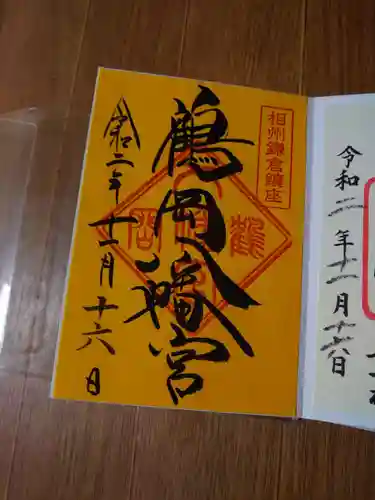 相州鎌倉鎮座
鶴岡八幡宮
令和二年十一月十六日
令和二年十一月十六日